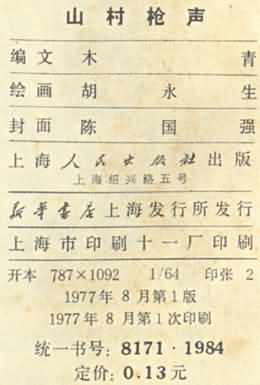 山村枪声
编文 木青
绘画 胡永生
封面 陈国强
上海人民出版社出版
上海绍兴路五号
新华书店上海发行所发行
上海市印刷十一厂印刷
开本 787×1092 1/64 印张 2
1977年8月第1版
1977年8月第1次印刷
统一书号：8171·1984
定价：0.13元